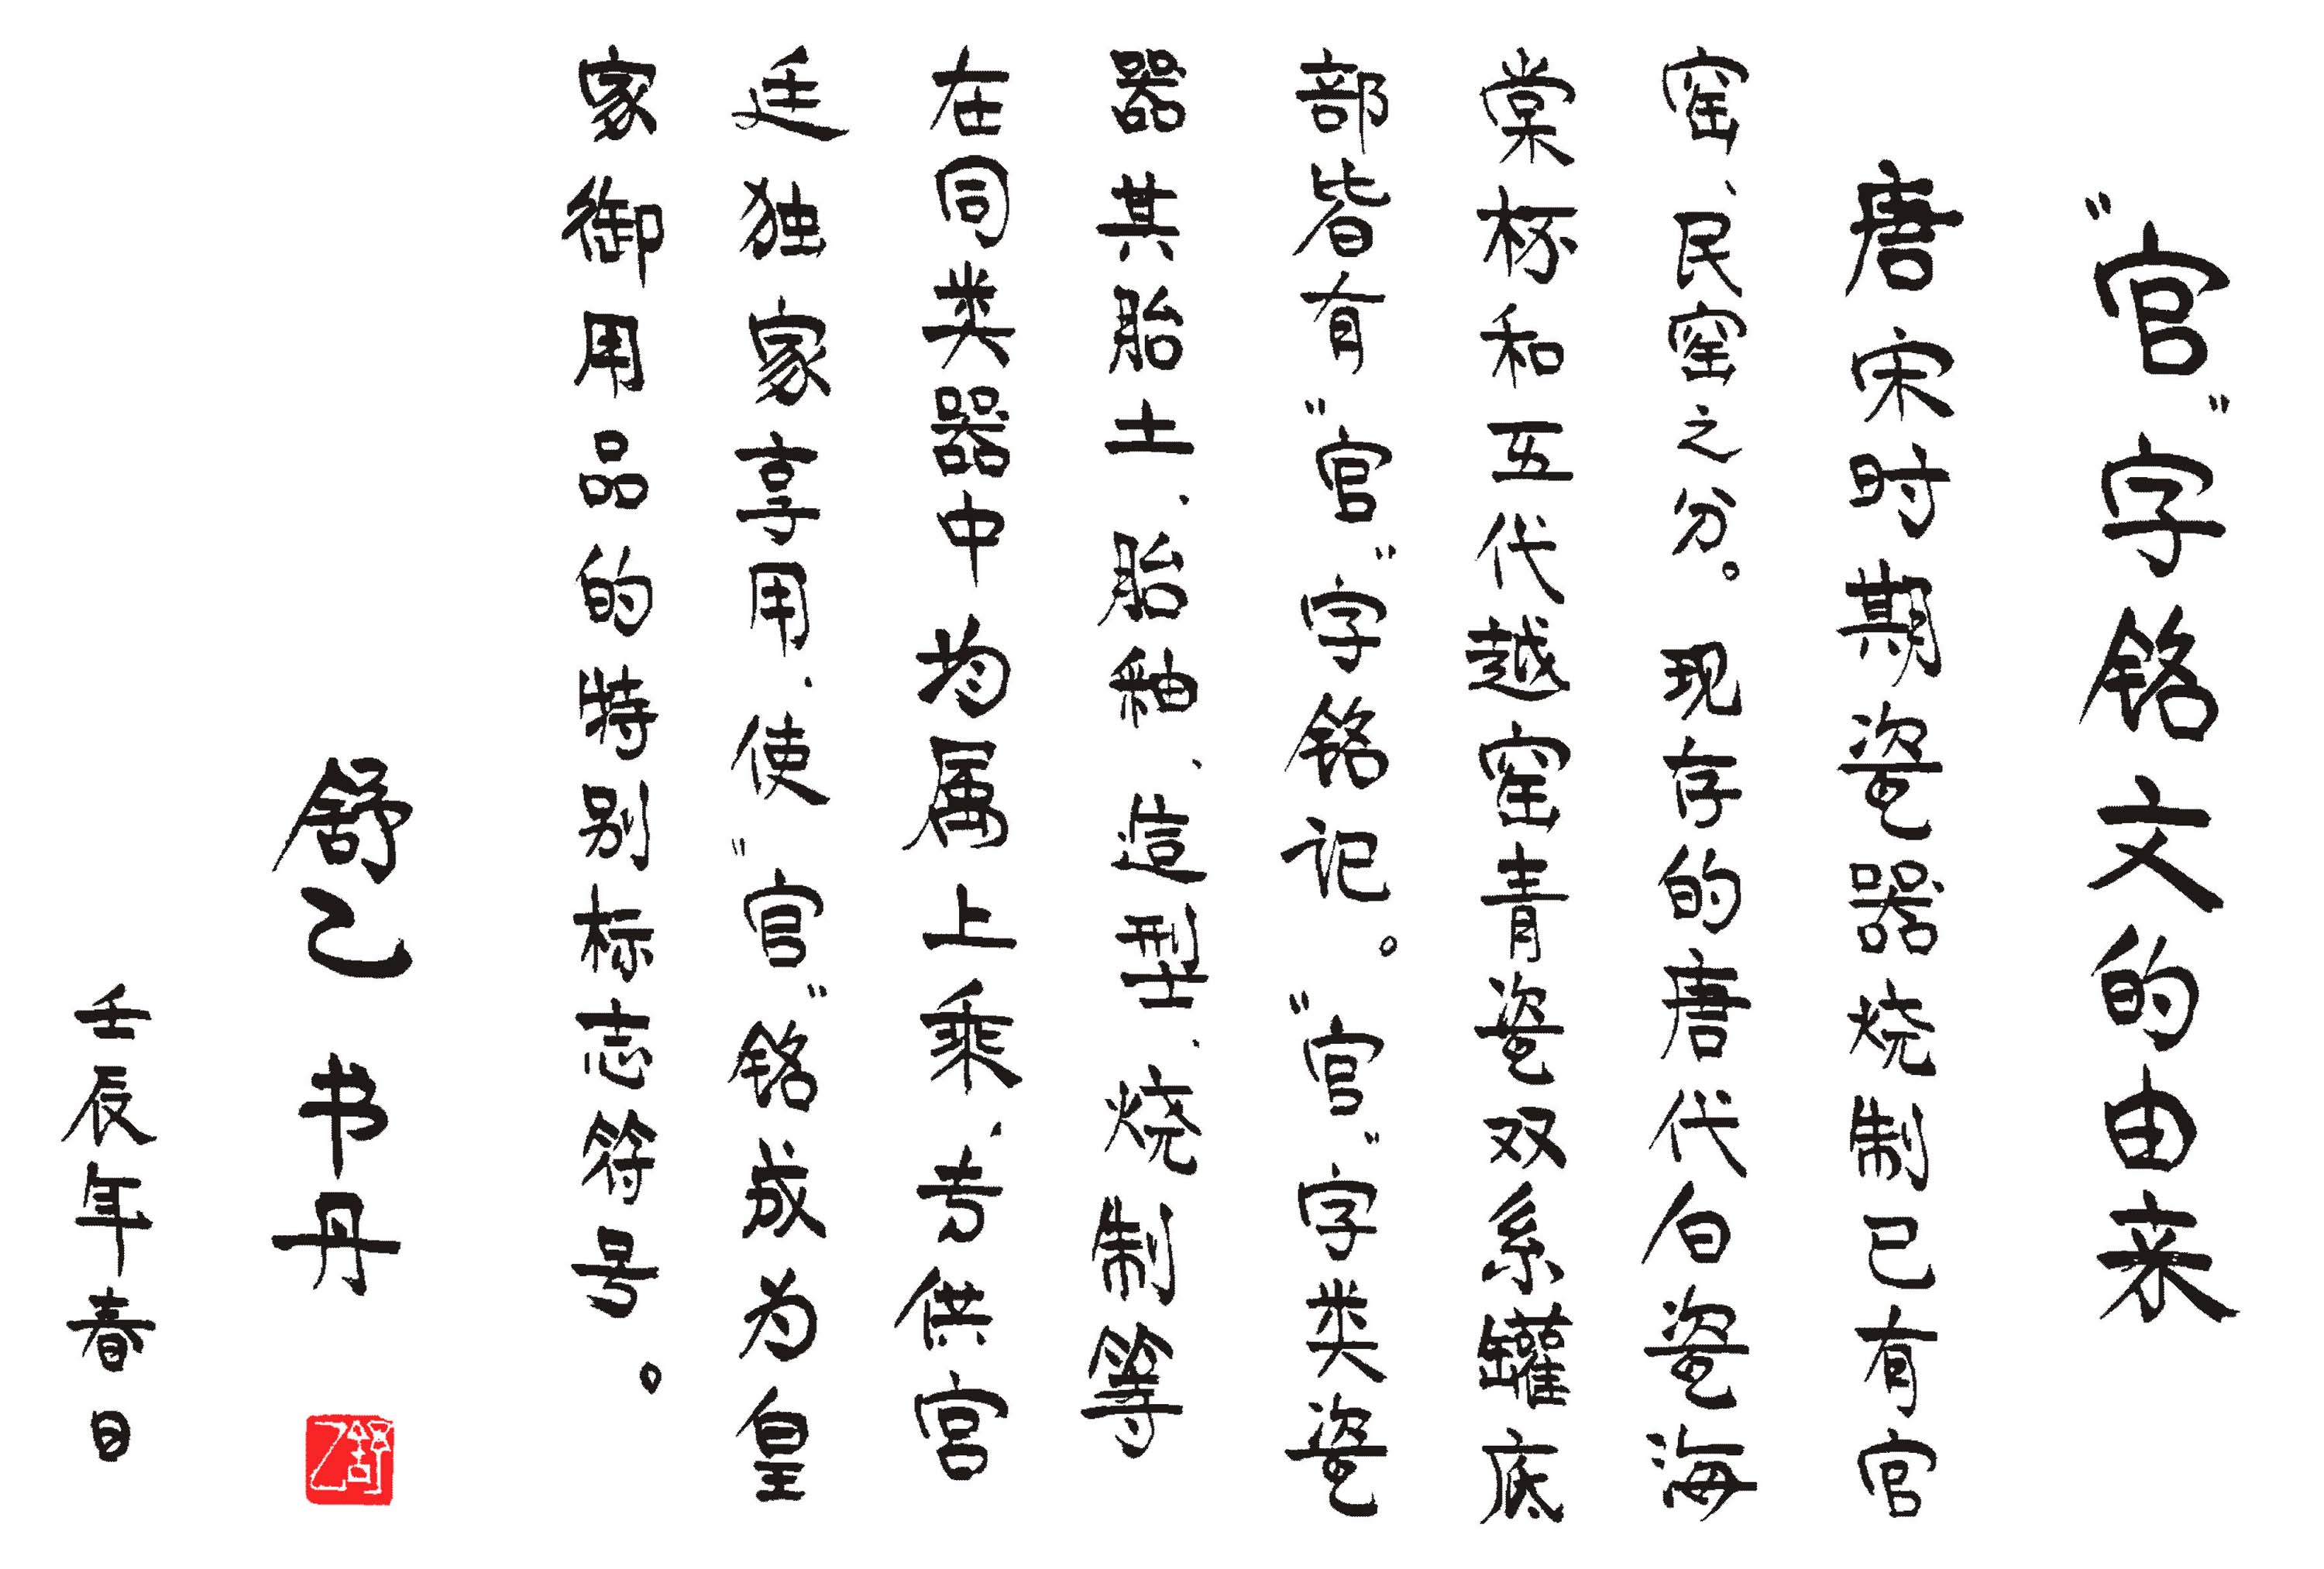 “官”字铭文的由来
唐宋时期瓷器烧制已有官
窑、民窑之分。现存的唐代白瓷海
棠杯和五代越窑青瓷双系罐底
部皆有“官”字铭记。“官”字类瓷
器其胎土、胎釉、造型、烧制等
在同类器中均属上乘、专供宫
廷独家享用、使“官”铭成为皇
家御用品的特别标志符号。
舒乙 书丹
舒乙
壬辰年春日